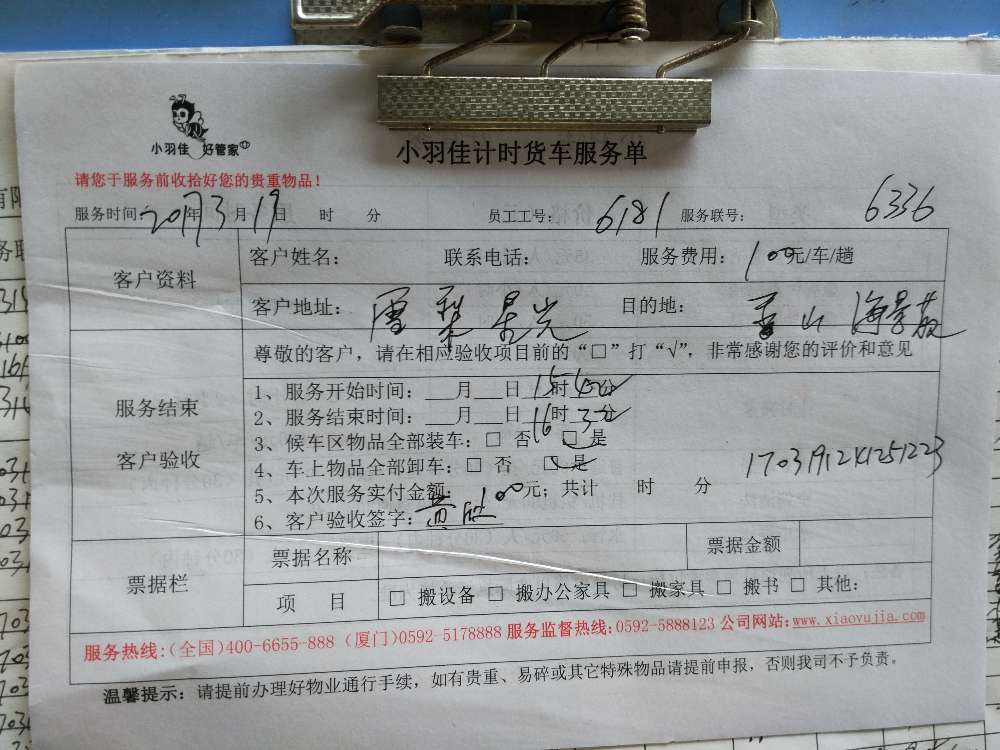 小羽佳 好管家
小羽佳计时货车服务单
请您于服务前收拾好您的贵重物品！
服务时间: 2017年3月19日 时 分 员工工号: 6181 服务联号: 6336
客户资料
客户姓名: 联系电话: 服务费用: 100元/车/趟
客户地址: 雪梨星光 目的地: 山海景
尊敬的客户，请在相应验收项目前的“□”打“√”，非常感谢您的评价和意见
服务结束
客户验收
1、服务开始时间: ___月___日15时40分
2、服务结束时间: ___月___日16时3分
3、候车区物品全部装车: □ 否 □ 是
4、车上物品全部卸车: □ 否 □ 是
1703191241251223
5、本次服务实付金额: 100元; 共计 时 分
6、客户验收签字: 黄
票据栏
票据名称 票据金额
项 目 □ 搬设备 □ 搬办公家具 □ 搬家具 □ 搬书 □ 其他:
服务热线:(全国)400-6655-888 (厦门)0592-5178888 服务监督热线:0592-5888123 公司网站:www.xiaoyujia.com
温馨提示: 请提前办理好物业通行手续，如有贵重、易碎或其它特殊物品请提前申报，否则我司不予负责。